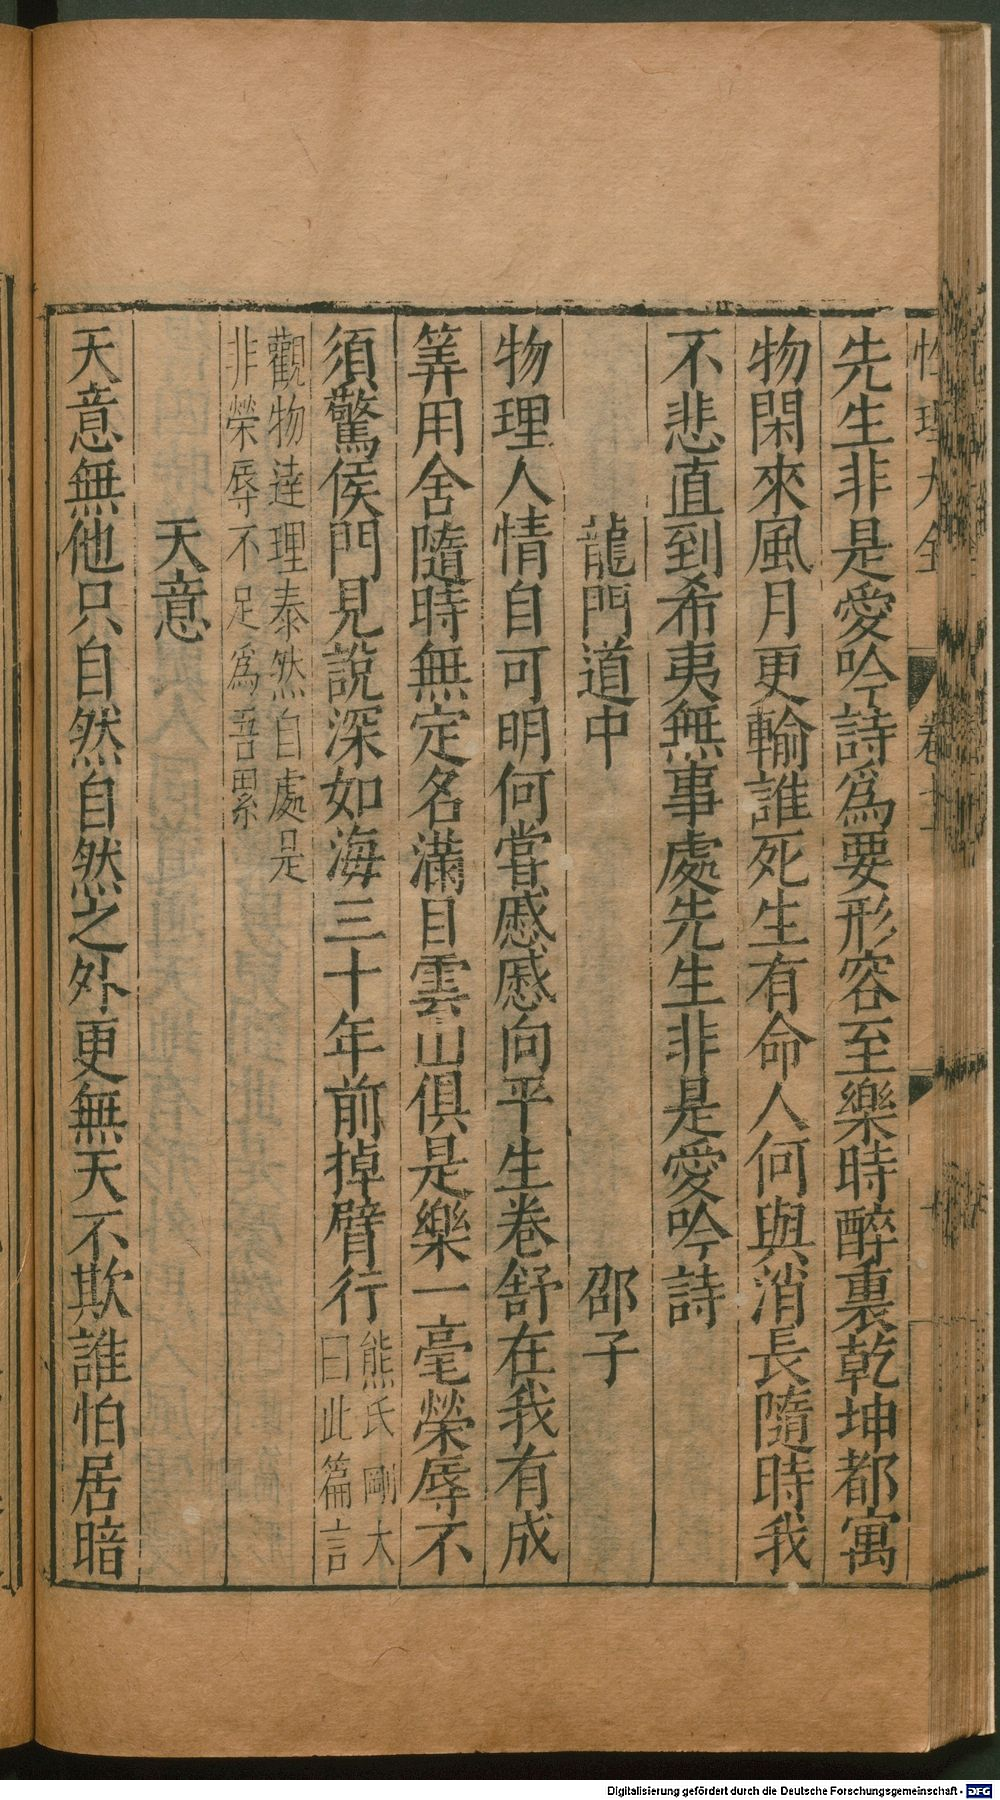 性理大全 卷七十
先生非是愛吟詩爲要形容至樂時醉裏乾坤都寓
物閑來風月更輸誰死生有命人何與消長隨時我
不悲直到希夷無事處先生非是愛吟詩
龍門道中 邵子
物理人情自可明何嘗戚戚向平生卷舒在我有成
筭用舍隨時無定名滿目雲山俱是樂一毫榮辱不
須驚侯門見說深如海三十年前掉臂行熊氏剛大
曰此篇言
觀物達理泰然自處是
非榮辱不足爲吾累
天意
天意無他只自然自然之外更無天不欺誰怕居暗
Digitalisierung gefördert durch die Deutsche Forschungsgemeinschaft - DFG